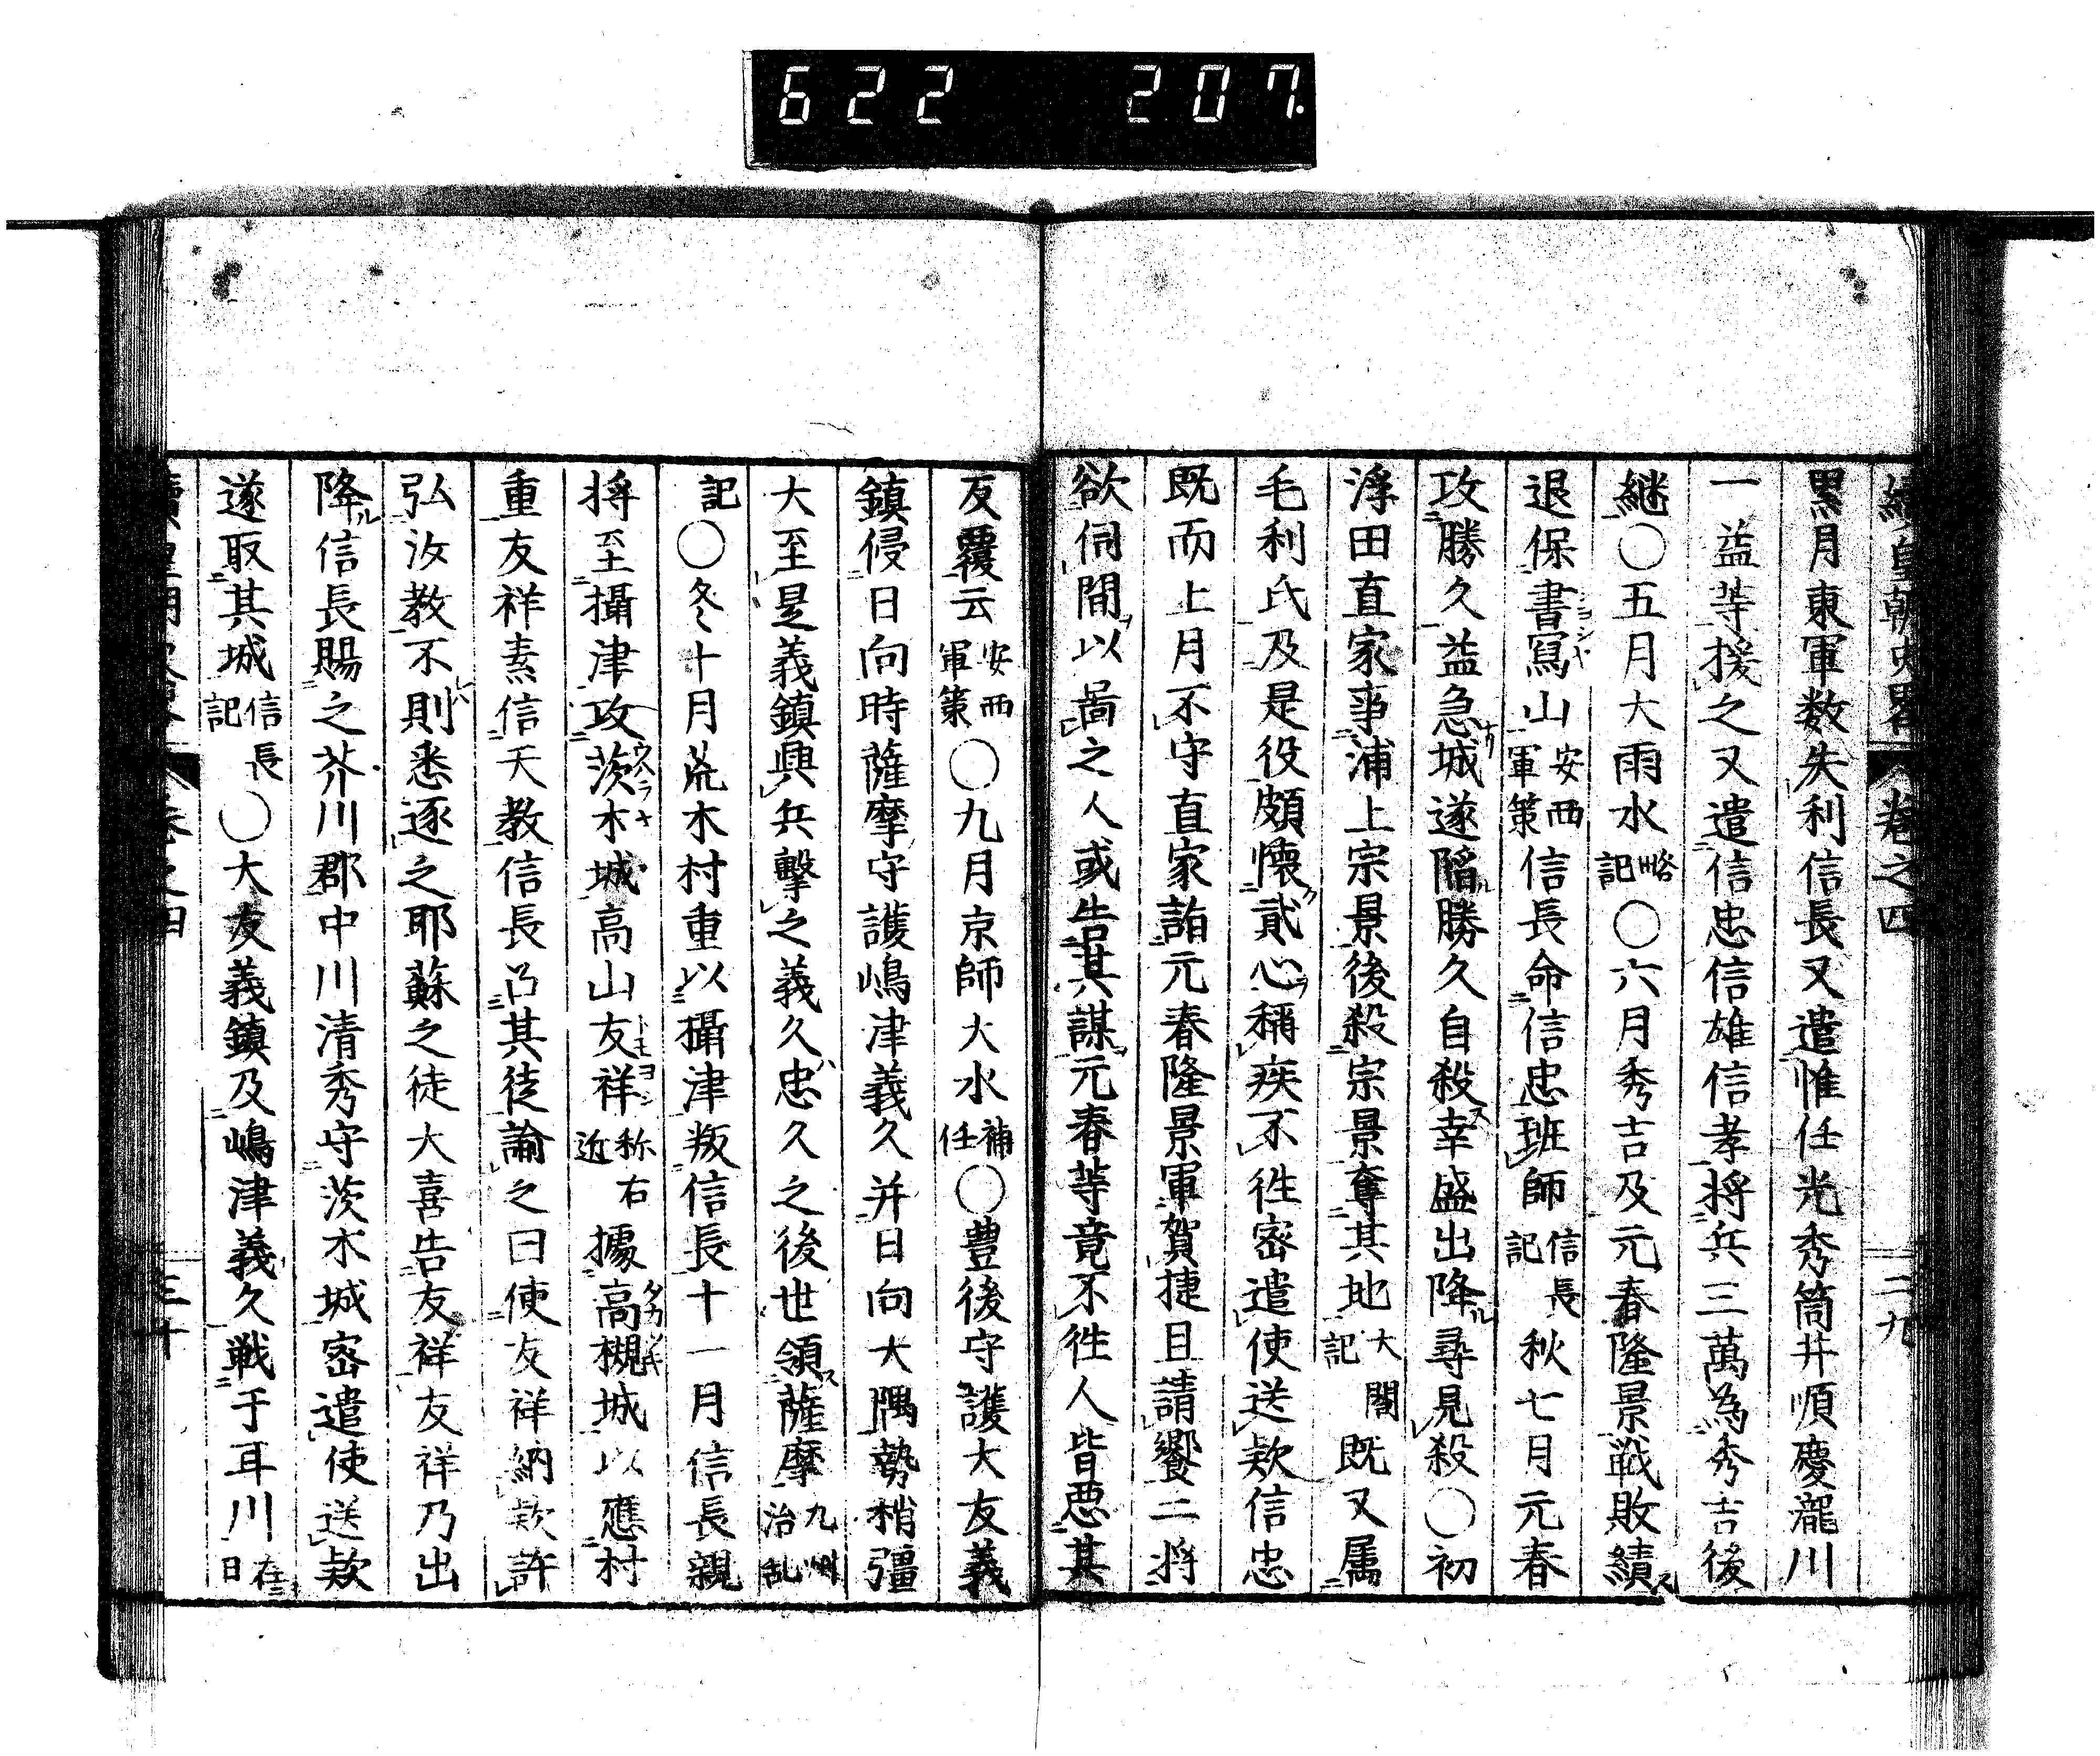 622 207.
續皇朝史畧 巻之四 二九
黒月東軍数失利信長又遣惟任光秀筒井順慶瀧川
一益等援之又遣信忠信雄信孝将兵三萬為秀吉後
継〇五月大雨水略記〇六月秀吉及元春隆景戦敗績
退保書寫山安西軍策信長命信忠班師信長記秋七月元春
攻勝久益急城遂陥勝久自殺幸盛出降尋見殺〇初
浮田直家事浦上宗景後殺宗景奪其地大閤記既又属
毛利氏及是役頗懐貳心稱疾不徃密遣使送欵信忠
既而上月不守直家詣元春隆景軍賀捷且請饗二将
欲伺間以啚之人或告其謀元春等竟不徃人皆悪其
反覆云安西軍策〇九月京師大水補任〇豊後守護大友義
鎮侵日向時薩摩守護嶋津義久并日向大隅勢梢彊
大至是義鎮興兵擊之義久忠久之後世領薩摩九州治乱
記〇冬十月荒木村重以攝津叛信長十一月信長親
将至攝津攻茨木城高山友祥称右近據高槻城以應村
重友祥素信天教信長召其徒論之曰使友祥納欵許
弘汝教不則悉逐之耶蘇之徒大喜告友祥友祥乃出
降信長賜之芥川郡中川清秀守茨木城密遣使送欵
遂取其城信長記〇大友義鎮及嶋津義久戦于耳川在日
續皇朝史畧 巻之四 三十